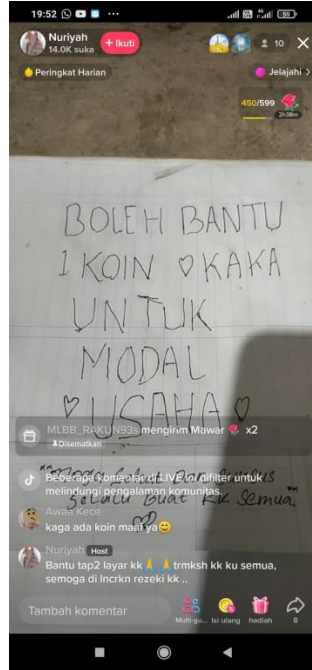 19:52
59
Nuriyah
14.0K suka
+ Ikuti
10
Peringkat Harian
Jelajahi >
450/599
2h38m
BOLEH BANTU
1 KOIN ♡ KAKA
UNTUK
MODAL
♡ USAHA ♡
MLBB_RAKUN93s mengirim Mawar 🌹 x2
Disematkan
Beberapa komentar di LIVE ini difilter untuk
melindungi pengalaman komunitas.
selalu buat KK Semua
Awaa Kece
kaga ada koin maaf ya😊
Nuriyah Host
Bantu tap2 layar kk🙏🙏trmksh kk ku semua,
semoga di lncrkn rezeki kk ..
Tambah komentar
Multi-gu...
Isi ulang
hadiah
8